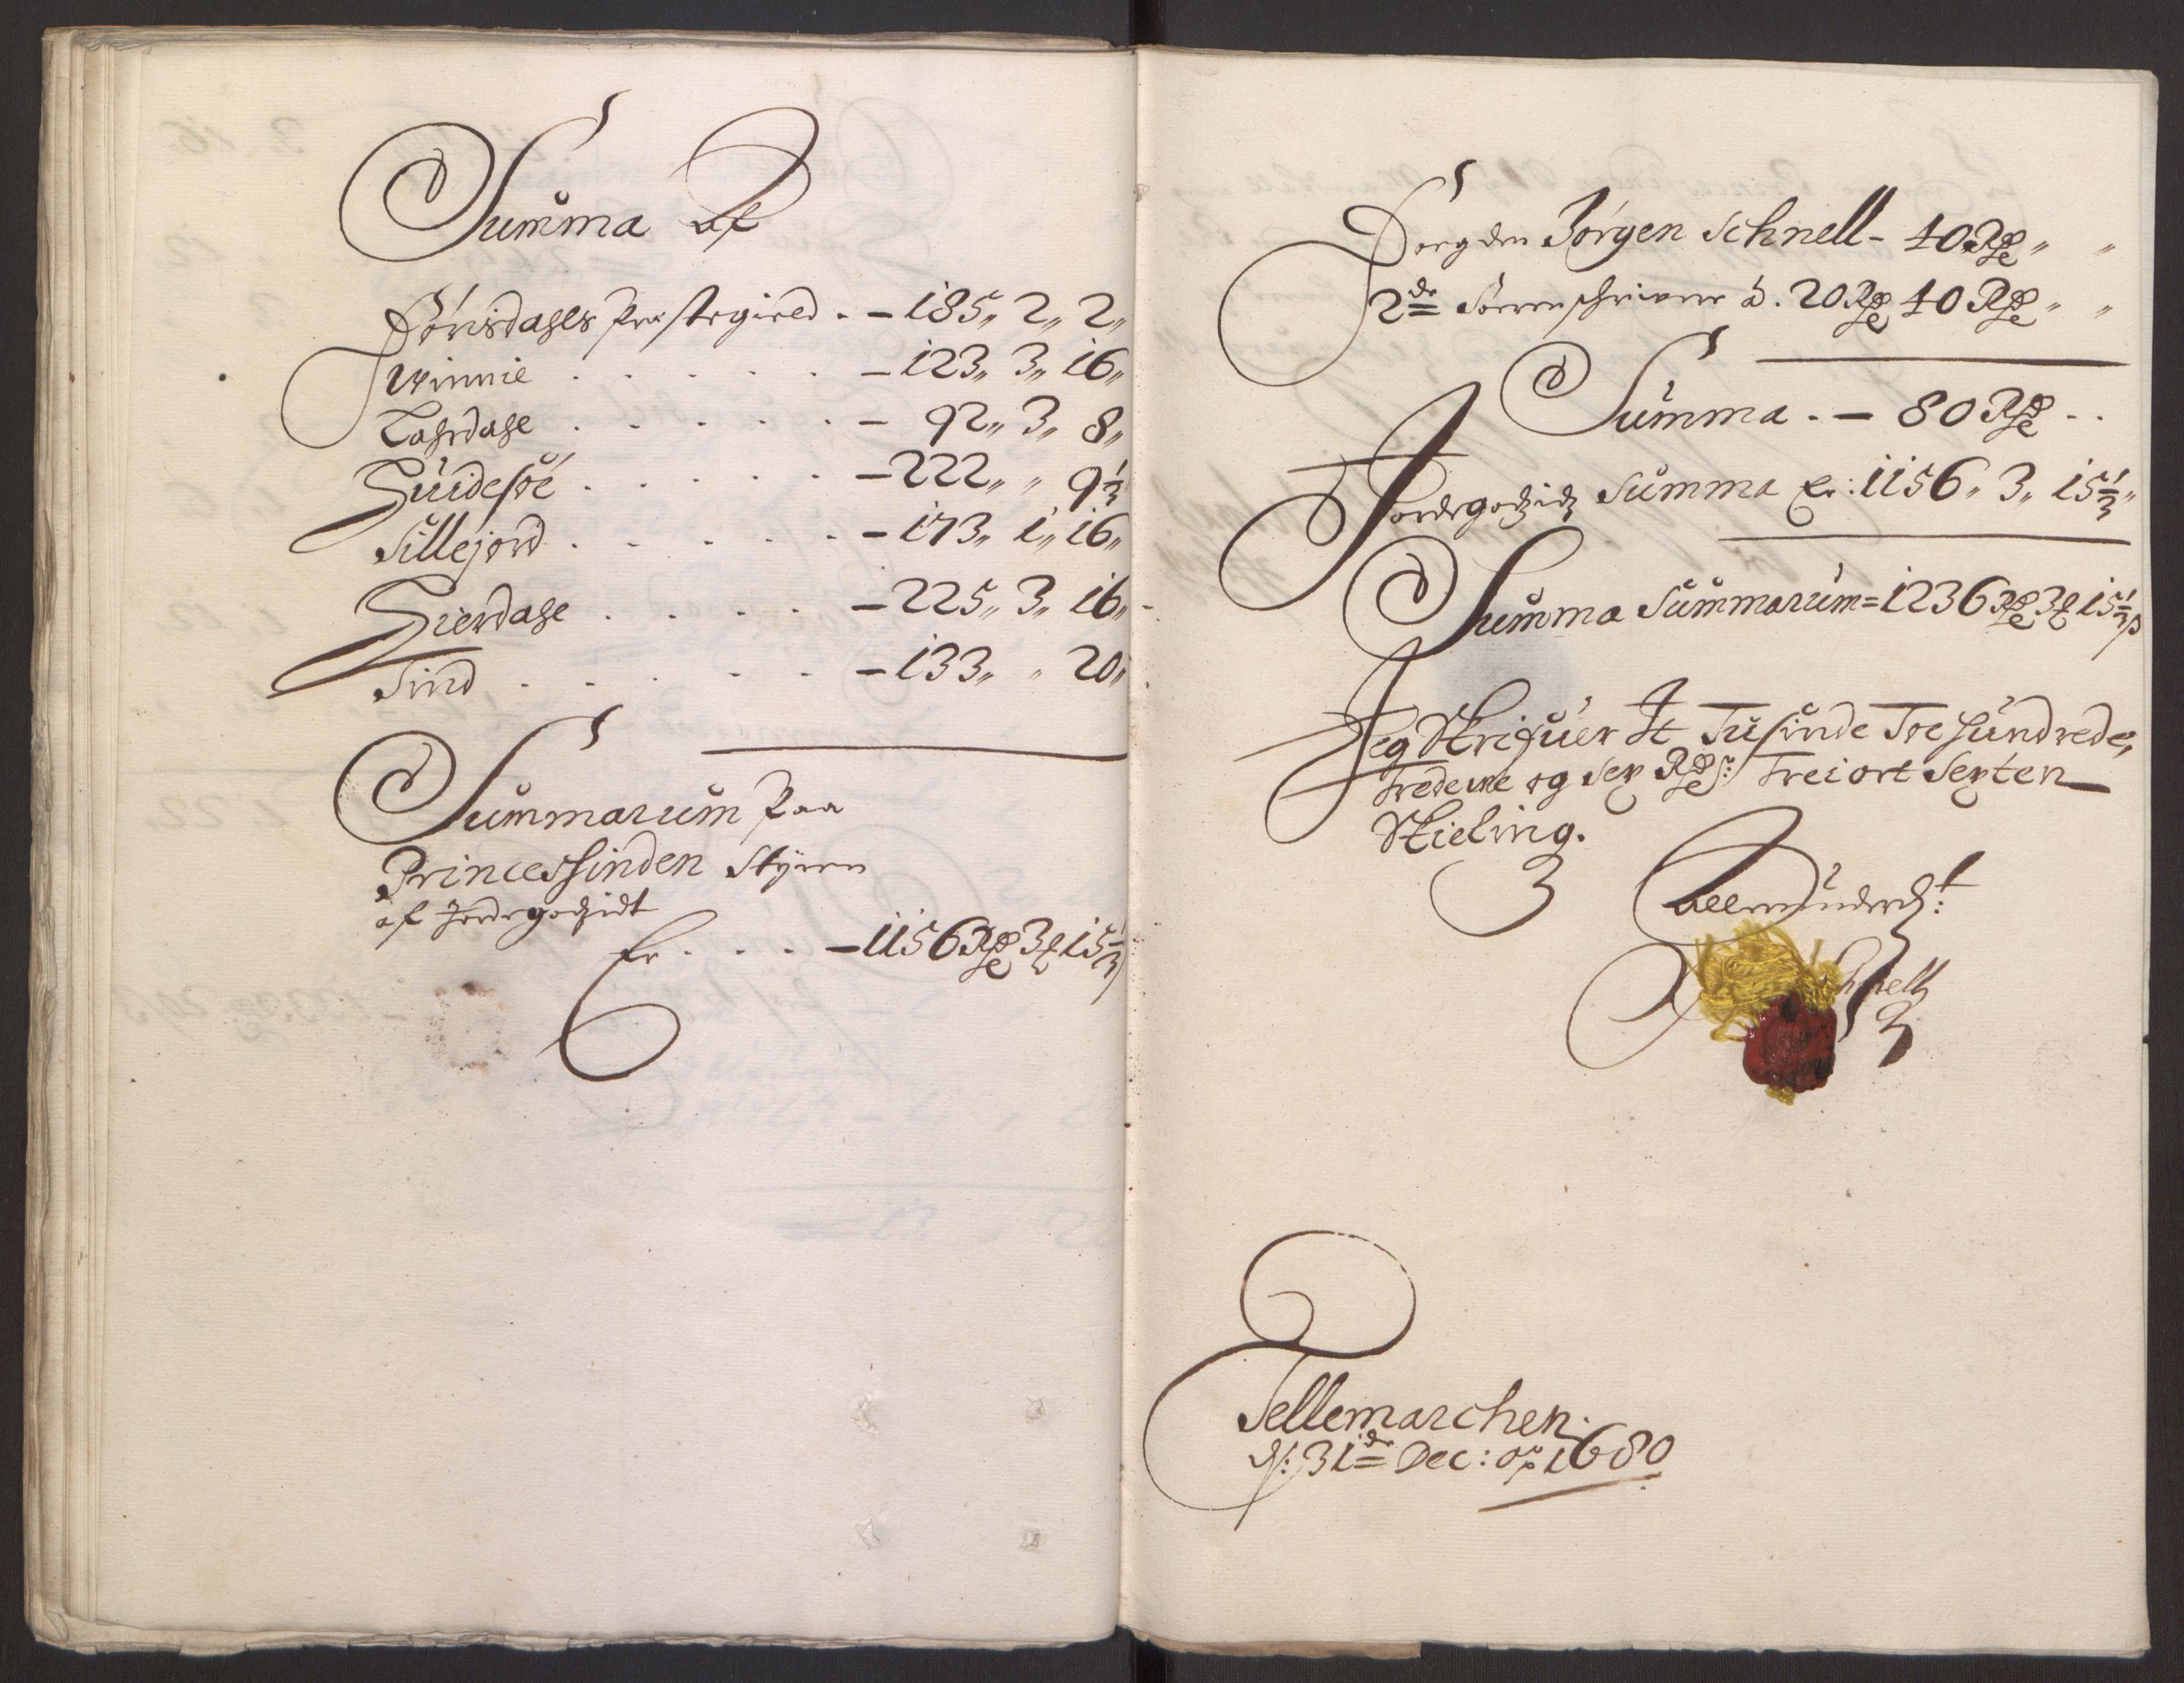 Summa Af
Hörisdahls Præstegield . - 185„ 2„ 2„
Winnie . . . . . - 123„ 3„ 16„
Lahrdahl . . . . . - 92„ 3„ 8„
Huidesöe . . . . . - 222„ „ 9½
Sillejord . . . . . - 173„ 1„ 16„
Hierdahl . . . . - 225„ 3„ 16„
Tind . . . . . - 133„ „ 20„
Summarum Paa
Princessinden Styren
af Jordegodzidt
Er . . . - 1156 Rdr 3 ort 15½
Fogden Jörgen Schnell - 40 Rdr „ „
2de Sorenschriuere á . 20 Rdr 40 Rdr „ „
Summa . - 80 Rdr . .
Jordegodzidz Summa Er: 1156„ 3„ 15½„
Summa Summarum = 1236 Rdr 3 ort 15½ s
Jeg Skrifuer It Tusinde Toe Hundrede,
Tredeue og Sex Rdr: Trei ort Sexten
Skieling.
Schnell
Tellemarchen
d: 31de Dec: ao 1680